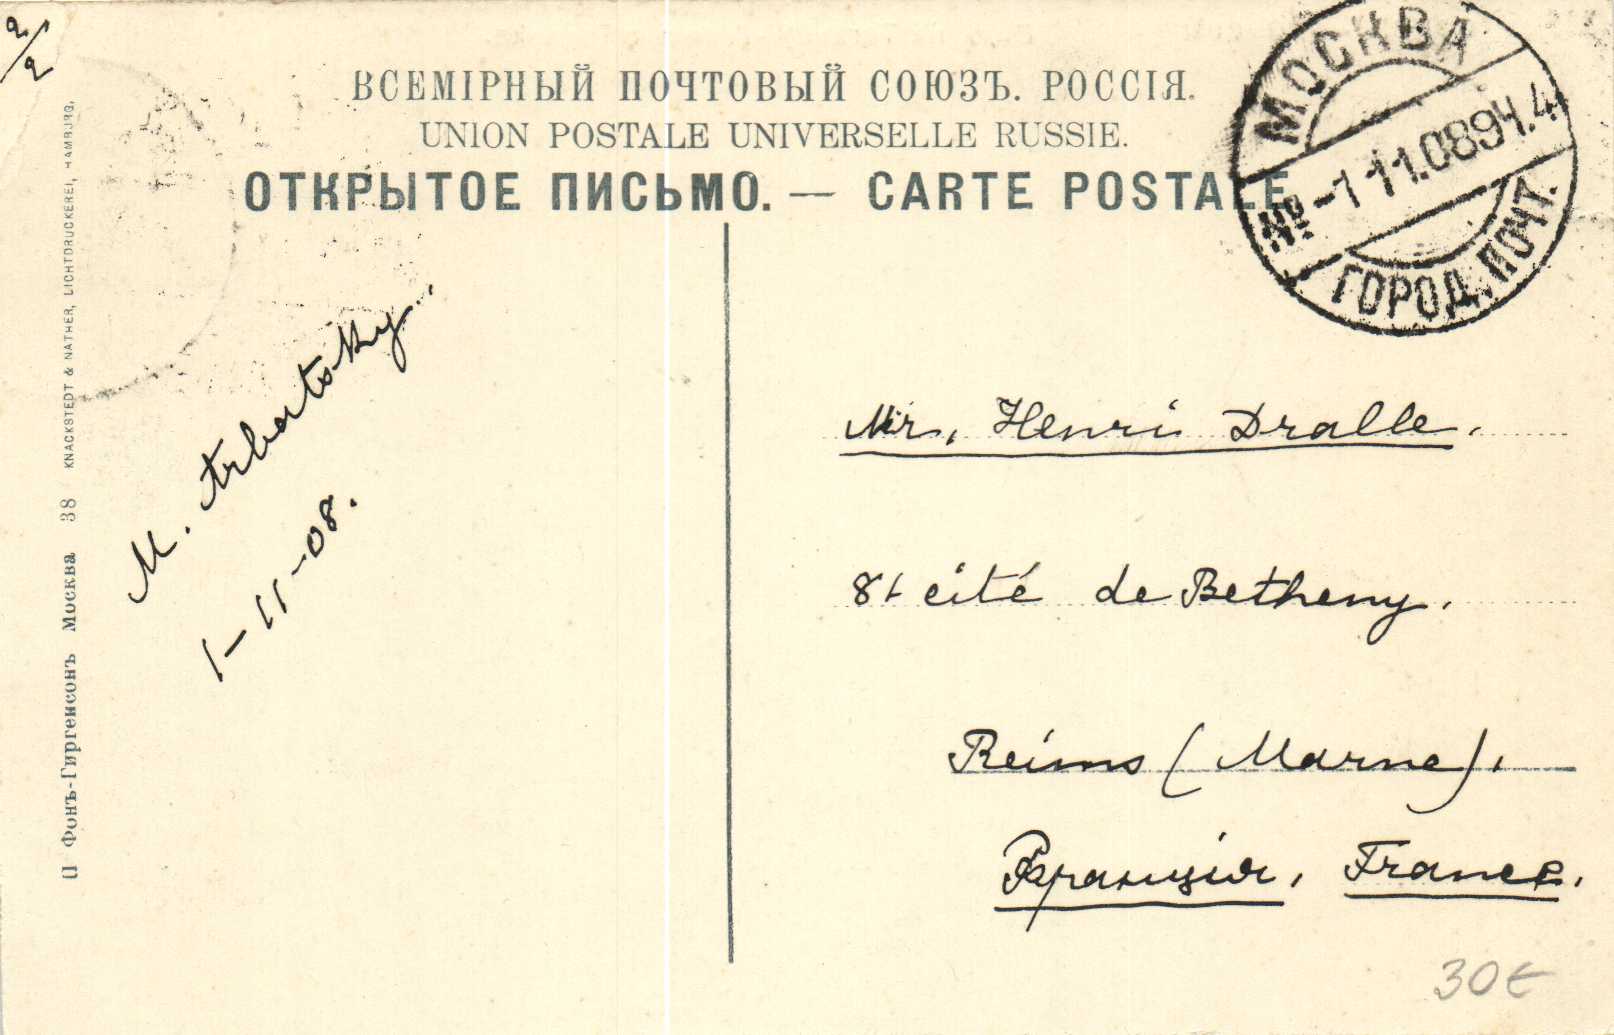 2/2
ВСЕМІРНЫЙ ПОЧТОВЫЙ СОЮЗЪ. РОССІЯ.
UNION POSTALE UNIVERSELLE RUSSIE.
ОТКРЫТОЕ ПИСЬМО. — CARTE POSTALE
МОСКВА
№ -1 11.08 9 Ч. 4
ГОРОД. ПОЧТ.
Фонъ-Гиргенсонъ Москва 38 KNACKSTEDT & NÄTHER, LICHTDRUCKEREI, HAMBURG.
M. Arbatsky.
1-11-08.
Mr, Henri Dralle.
cité de Betheny.
Reims (Marne),
Франція, France.
30€